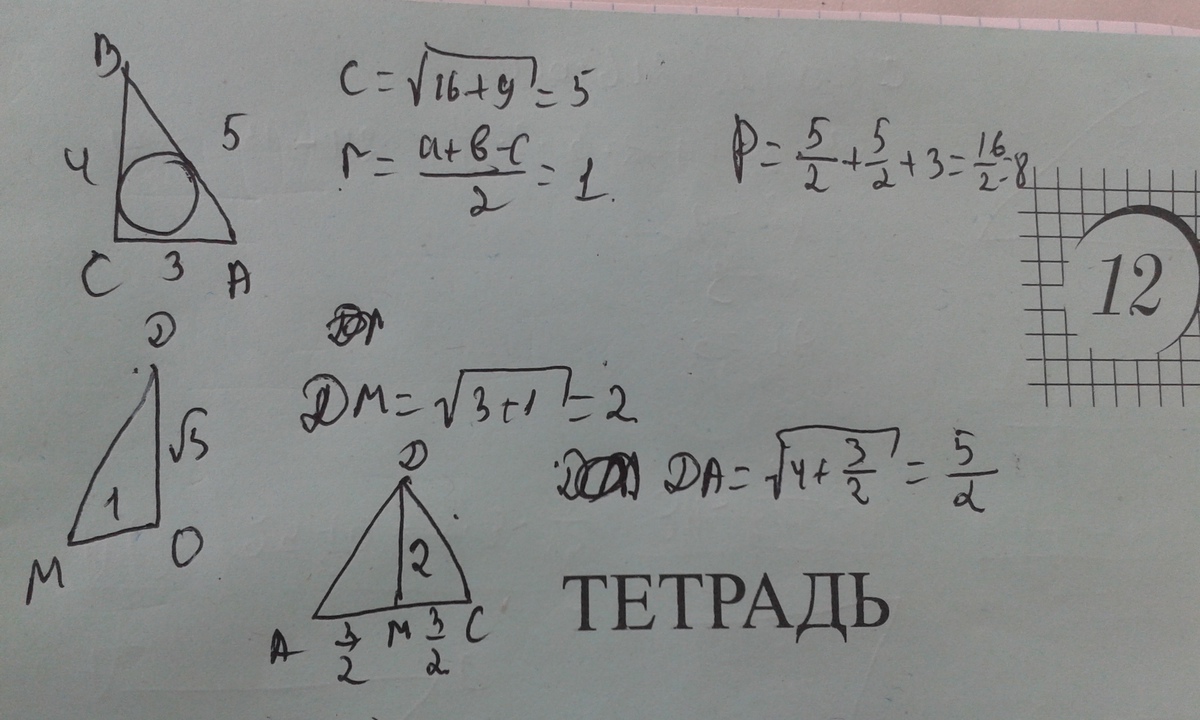 B
4
5
C 3 A
C = √16+9 = 5
r = a+b-c/2 = 1
P = 5/2 + 5/2 + 3 = 16/2 = 8
12
D
√3
1
M O
DM = √3+1 = 2
D
2
A 3/2 M 3/2 C
DA = √4+3/2 = 5/2
ТЕТРАДЬ